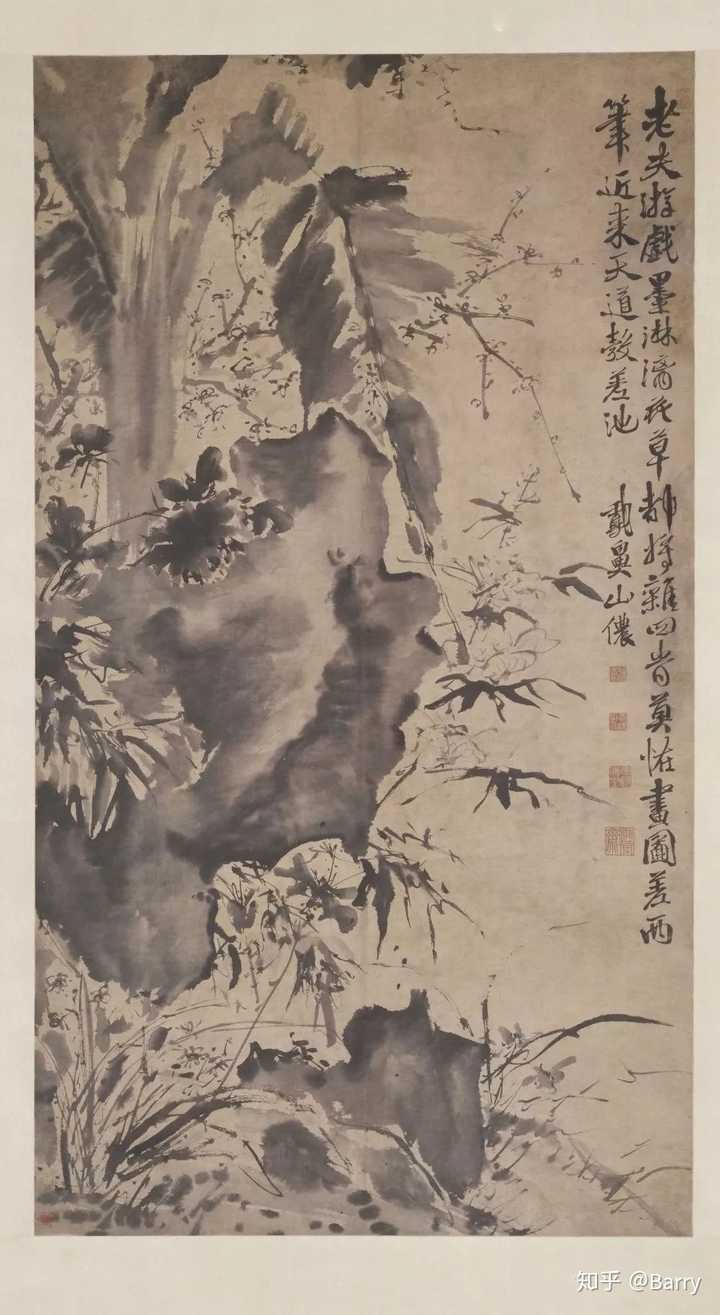 老夫游戲墨淋漓花草都將雜四時莫怪畫圖差兩
筆近來天道彀差池
天池山儂
知乎 @Barry